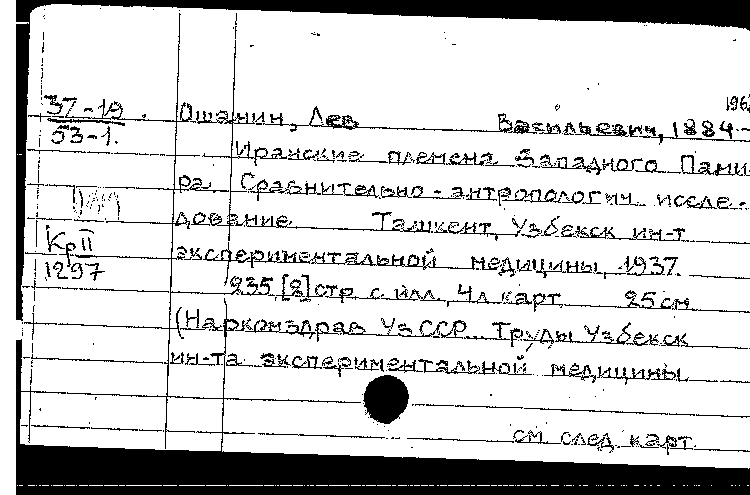 196
37-19. Ошанин, Лев Васильевич, 1884-
53-1.
Иранские племена Западного Пами-
ра. Сравнительно-антропологич. иссле-
дование. Ташкент, Узбекск. ин-т
Кр II
1297
экспериментальной медицины, 1937.
235,[2]стр. с. илл., 4 л. карт. 25 см.
(Наркомздрав УзССР. Труды Узбекск.
ин-та экспериментальной медицины.
см. след. карт.